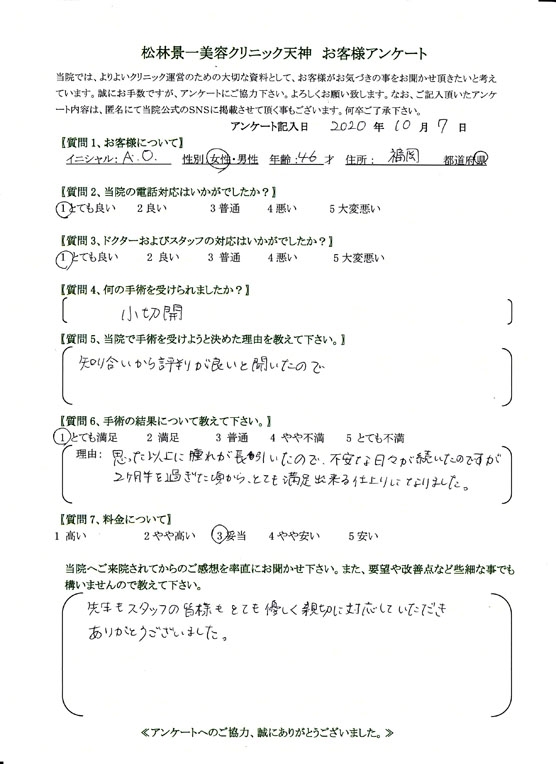 松林景一美容クリニック天神 お客様アンケート
当院では、よりよいクリニック運営のための大切な資料として、お客様がお気づきの事をお聞かせ頂きたいと考え
ています。誠にお手数ですが、アンケートにご協力下さい。よろしくお願い致します。なお、ご記入頂いたアンケ
ート内容は、匿名にて当院公式のSNSに掲載させて頂く事もございます。何卒ご了承下さい。
アンケート記入日 2020 年 10 月 7 日
【質問1、お客様について】
イニシャル: A.O. 性別 女性・男性 年齢:46 才 住所: 福岡 都道府県
【質問2、当院の電話対応はいかがでしたか?】
1とても良い 2良い 3普通 4悪い 5大変悪い
【質問3、ドクターおよびスタッフの対応はいかがでしたか?】
1とても良い 2 良い 3 普通 4悪い 5大変悪い
【質問4、何の手術を受けられましたか?】
小切開
【質問5、当院で手術を受けようと決めた理由を教えて下さい。】
知り合いから評判が良いと聞いたので
【質問6、手術の結果について教えて下さい。】
1とても満足 2 満足 3 普通 4 やや不満 5 とても不満
理由: 思った以上に腫れが長引いたので、不安な日々が続いたのですが
2ヶ月半を過ぎた頃から、とても満足出来る仕上りになりました。
【質問7、料金について】
1 高い 2やや高い 3妥当 4やや安い 5安い
当院へご来院されてからのご感想を率直にお聞かせ下さい。また、要望や改善点など些細な事でも
構いませんので教えて下さい。
先生もスタッフの皆様もとても優しく親切に対応していただき
ありがとうございました。
≪アンケートへのご協力、誠にありがとうございました。≫